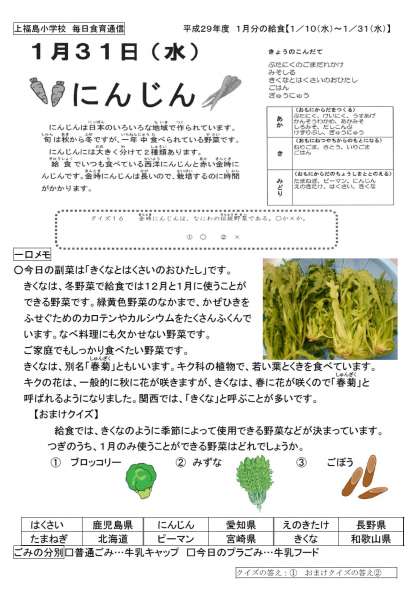 上福島小学校 毎日食育通信
平成29年度 1月分の給食【1/10(水)~1/31(水)】
1月31日(水)
にんじん
きょうのこんだて
ぶたにくのごまだれかけ
みそしる
きくなとはくさいのおひたし
ごはん
ぎゅうにゅう
にんじんは日本のいろいろな地域で作られています。
旬は秋から冬ですが、一年中食べられている野菜です。
にんじんには大きく分けて2種類あります。
給食でいつも食べている西洋にんじんと赤い金時に
んじんです。金時にんじんは長いので、栽培するのに時間
がかかります。
あか
(おもにからだをつくる)
ぶたにく、けいにく、うすあげ
きんぎょうにゅう
き
(おもにねつやちからのもとになる)
ねりごま、さとう、いりごま
ごはん
みどり
(おもにからだのちょうしをととのえる)
たまねぎ、ピーマン、にんじん
えのきたけ、はくさい、きくな
クイズ16 金時にんじんは、なにわの伝統野菜である。○か×か。
① ○ ② ×
一口メモ
○今日の副菜は「きくなとはくさいのおひたし」です。
きくなは、冬野菜で給食では12月と1月に使うことが
できる野菜です。緑黄色野菜のなかまで、かぜひきを
ふせぐためのカロテンやカルシウムをたくさんふくんで
います。なべ料理にも欠かせない野菜です。
ご家庭でもしっかり食べたい野菜です。
きくなは、別名「春菊」ともいいます。キク科の植物で、若い葉とくきを食べています。
しゅんぎく
キクの花は、一般的に秋に花が咲きますが、きくなは、春に花が咲くので「春菊」と
しゅんぎく
呼ばれるようになりました。関西では、「きくな」と呼ぶことが多いです。
【おまけクイズ】
給食では、きくなのように季節によって使用できる野菜などが決まっています。
つぎのうち、1月のみ使うことができる野菜はどれでしょうか。
① ブロッコリー ② みずな ③ ごぼう
はくさい 鹿児島県 にんじん 愛知県 えのきたけ 長野県
たまねぎ 北海道 ピーマン 宮崎県 きくな 和歌山県
ごみの分別 □普通ごみ…牛乳キャップ □今日のプラごみ…牛乳フード
クイズの答え:① おまけクイズの答え②